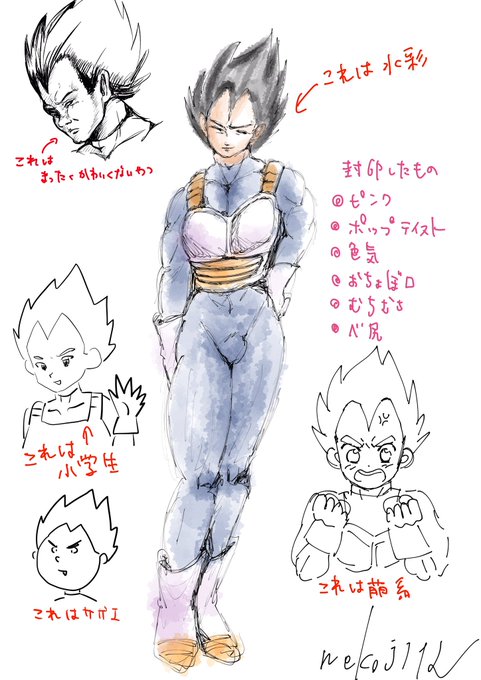 これは水彩
これは
まったくかわいくないやつ
封印したもの
◎ピンク
●ポップテイスト
●色気
●おちょぼ口
●むちむち
●ベ尻
これは
小学生
これはサザエ
これは萌系
nekoj112